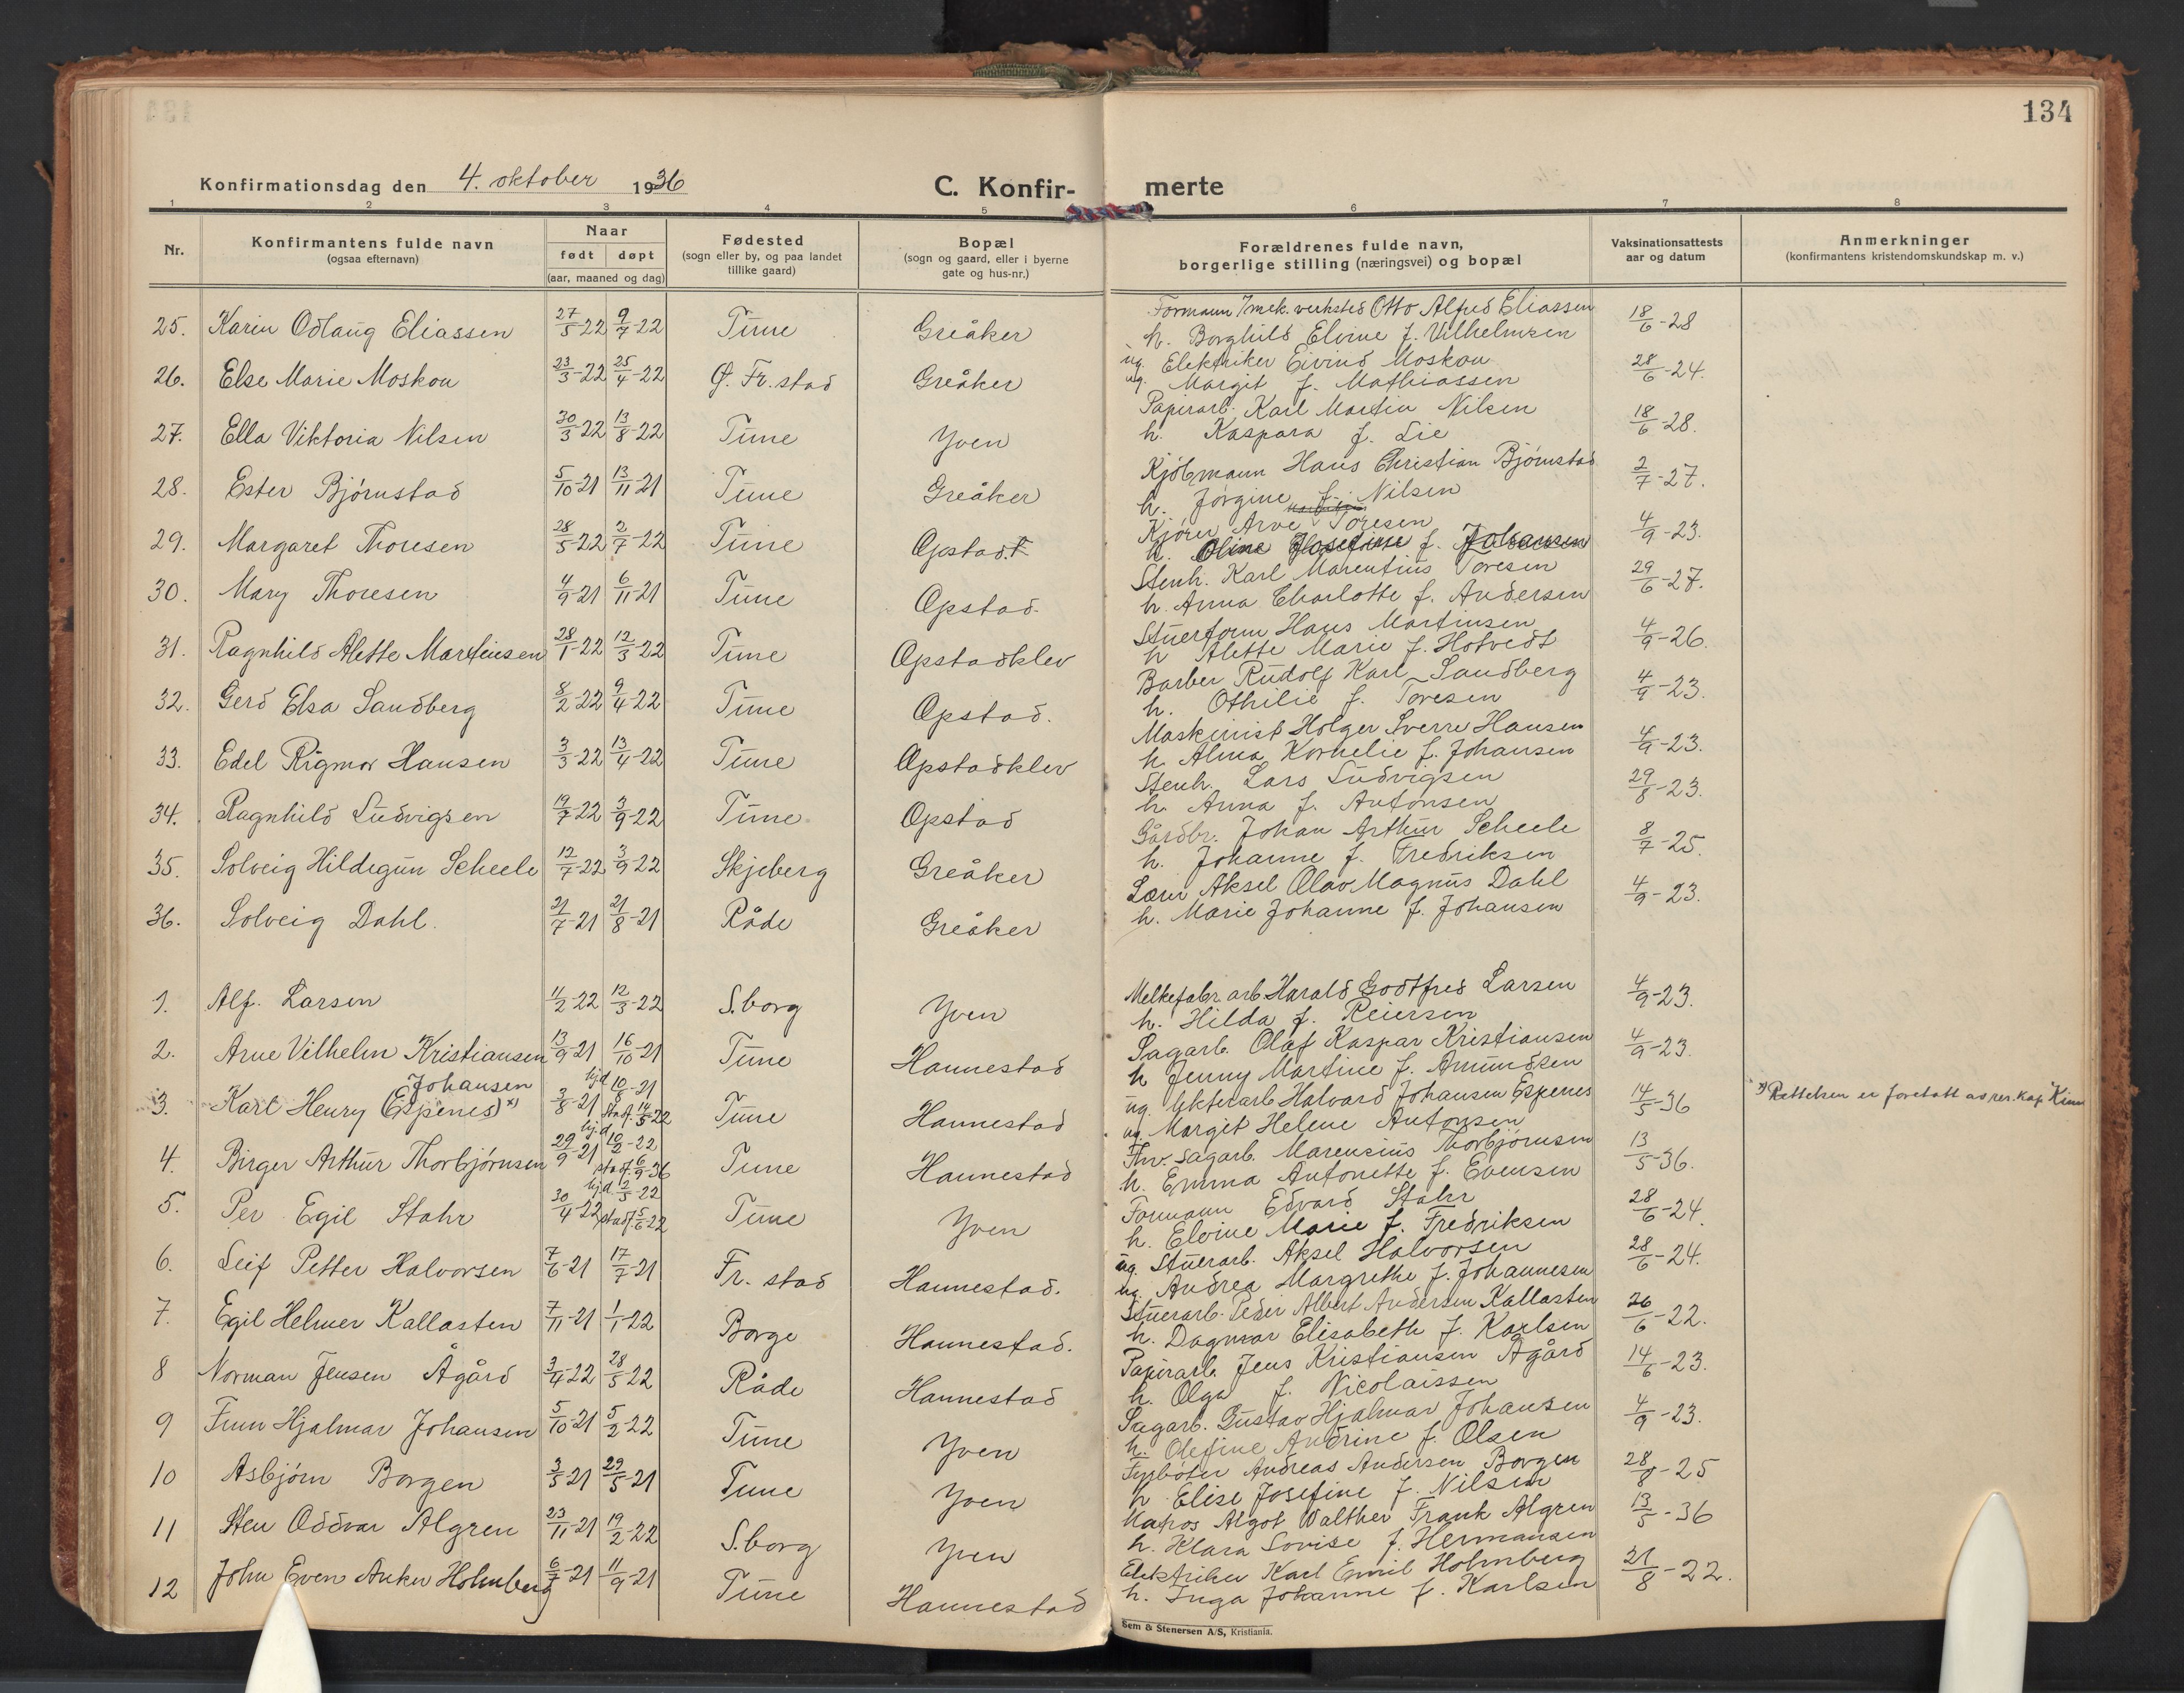 134
Konfirmationsdag den 4. oktober 1936 C. Konfir- merte
1 2 3 4 5 6 7 8
Nr. Konfirmantens fulde navn (ogsaa efternavn) Naar født døpt (aar, maaned og dag) Fødested (sogn eller by, og paa landet tillike gaard) Bopæl (sogn og gaard, eller i byerne gate og hus-nr.) Forældrenes fulde navn, borgerlige stilling (næringsvei) og bopæl Vaksinationsattests aar og datum Anmerkninger (konfirmantens kristendomskundskap m. v.)
25. Karin Odlaug Eliassen 27/5-22 9/7-22 Tune Greåker Formann /mek. verksted Otto Alfred Eliassen 18/6-28
h. Borghild Elvine f. Vilhelmsen
26. Else Marie Moskou 23/3-22 25/4-22 Ø. Fr.stad Greåker ug. Elektriker Eivind Moskou 28/6-24.
ug. Margit f. Mathiassen
27. Ella Viktoria Nilsen 30/3-22 13/8-22 Tune Yven Papirarb. Karl Martin Nilsen 18/6-28.
h. Kaspara f. Lie
28. Ester Bjørnstad 5/10-21 13/11-21 Tune Greåker Kjøbmann Hans Christian Bjørnstad 2/7-27.
h. Jørgine f. Nilsen
29. Margaret Thoresen 28/5-22 2/7-22 Tune Opstad. Kjører Arve Toresen 4/9-23.
h. Oline Josefine f. Johansen
30. Mary Thoresen 4/9-21 6/11-21 Tune Opstad. Stenh. Karl Marentius Toresen 29/6-27.
h. Anna Charlotte f. Andersen
31. Ragnhild Alette Martinsen 28/1-22 12/3-22 Tune Opstadklev Stuerform Hans Martinsen 4/9-26.
h Alette Marie f. Hotvedt
32. Gerd Elsa Sandberg 8/2-22 9/4-22 Tune Opstad. Barber Rudolf Karl Sandberg 4/9-23.
h. Othilie f. Toresen
33. Edel Rigmor Hansen 3/3-22 13/4-22 Tune Opstadklev Maskinist Holger Sverre Hansen 4/9-23.
h. Alma Kornelie f. Johansen
34. Ragnhild Ludvigsen 19/7-22 3/9-22 Tune Opstad Stenh. Lars Ludvigsen 29/8-23.
h. Anna f. Antonsen
35. Solveig Hildegun Scheele 12/7-22 3/9-22 Skjeberg Greåker Gårdbr. Johan Arthur Scheele 8/7-25.
h. Johanne f. Fredriksen
36. Solveig Dahl. 21/7-21 21/8-21 Råde Greåker Lærer Aksel Olav Magnus Dahl 4/9-23.
h. Marie Johanne f. Johansen
1. Alf. Larsen 11/2-22 12/3-22 S.borg Yven Melkefabr. arb. Harald Godtfred Larsen 4/9-23.
h. Hilda f. Reiersen
2. Arne Vilhelm Kristiansen 13/9-21 16/10-21 Tune Hannestad Sagarb. Olaf Kaspar Kristiansen 4/9-23.
h Jenny Martine f. Amundsen
Johansen hjd 10/8-21
3. Karl Henry (Espenes) x) 3/8-21 stadf. 14/5-22 Tune Hannestad ug. Likterarb Halvard Johansen Espenes 14/5-36 x) Rettelsen er foretatt av res. kap. Kinn
ug. Margit Helene Antonsen
4. Birger Arthur Thorbjørnsen 29/9-21 hj.d. 10/2-22 stadf. 6/9-36 Tune Hannestad Fhv. sagarb. Marensius Thorbjørnsen 13/5-36.
h. Emma Antonette f. Evensen
5. Per Egil Stahr 30/4-22 hjd. 2/5-22 stadf. 5/6-22 Tune Yven Formann Edvard Stahr 28/6-24.
h. Elvine Marie f. Fredriksen
6. Leif Petter Halvorsen 7/6-21 17/7-21 Fr. stad Hannestad. ug. Stuerarb. Aksel Halvorsen 28/6-24.
ug. Andrea Margrethe f. Johannesen
7. Egil Helmer Kallasten 7/11-21 1/1-22 Borge Hannestad. Stuerarb. Peder Albert Andersen Kallasten 26/6-22.
h. Dagmar Elisabeth f. Karlsen
8 Norman Jensen Ågård 3/4-22 28/5-22 Råde Hannestad Papirarb. Jens Kristiansen Ågård 14/6-23.
h. Olga f. Nicolaissen
9 Finn Hjalmar Johansen 5/10-21 5/2-22 Tune Yven Sagarb. Gustav Hjalmar Johansen 4/9-23.
h. Olefine Andrine f. Olsen
10 Asbjørn Borgen 3/5-21 29/5-21 Tune Yven Fyrbøter Andreas Andersen Borgen 28/8-25
h Elise Josefine f. Nilsen
11 Sten Oddvar Algren 23/11-21 19/2-22 S.borg Yven Matros Algot Walther Frank Algren 13/5-36
h. Klara Lovise f. Hermansen
12 John Even Anker Holmberg 6/7-21 11/9-21 Tune Hannestad Elektriker Karl Emil Holmberg 21/8-22.
h. Inga Johanne f. Karlsen
Sem & Stenersen A/S, Kristiania.